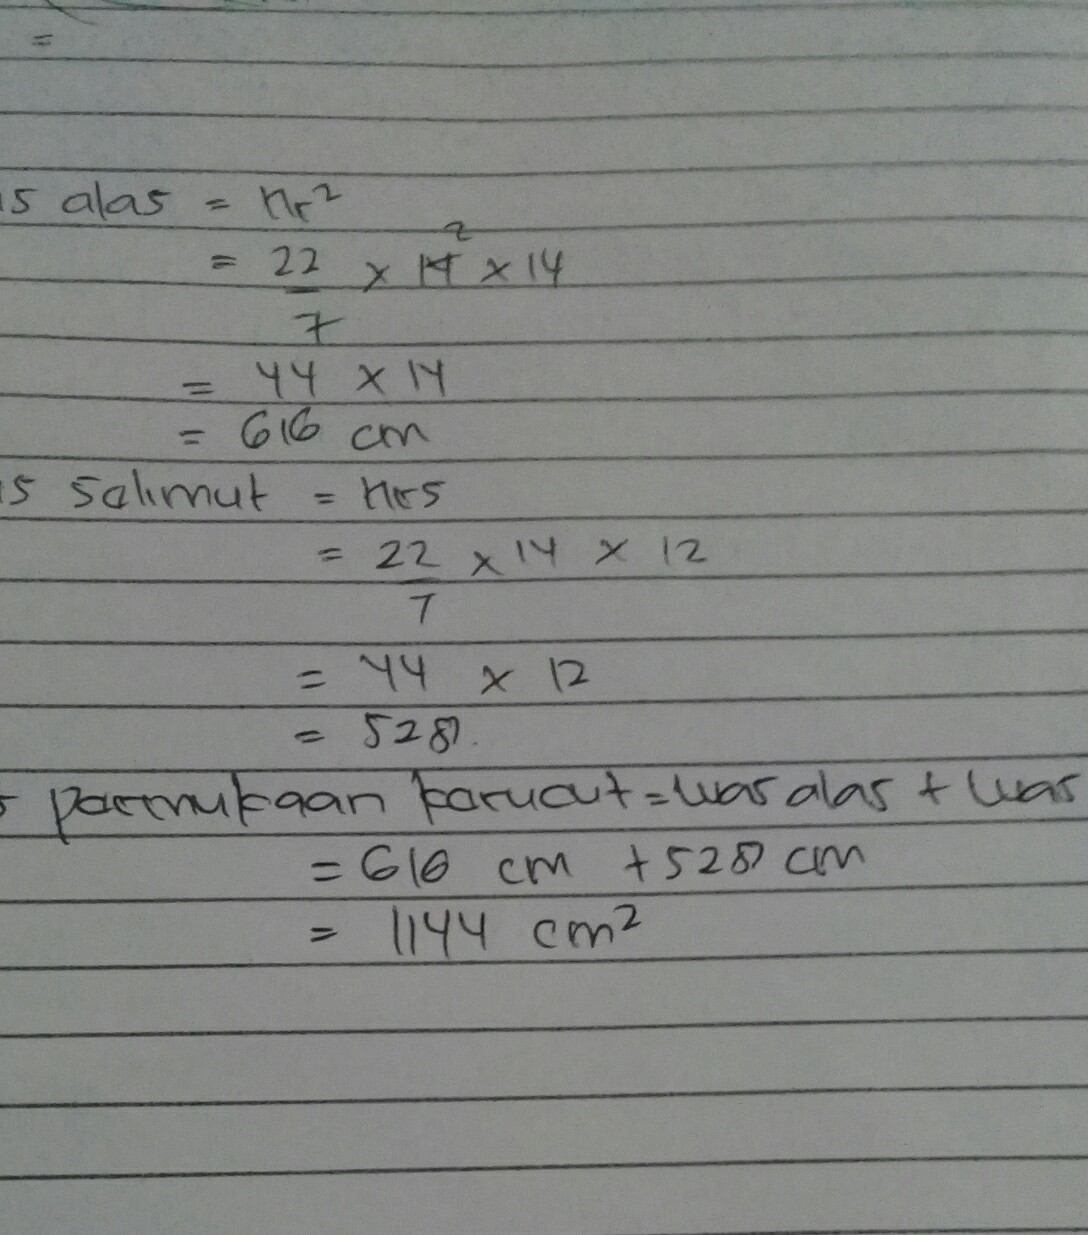 =
as alas = πr²
= 22/7 x 14² x 14
= 44 x 14
= 616 cm
as Selimut = πrs
= 22/7 x 14 x 12
= 44 x 12
= 528.
s permukaan kerucut = luas alas + luas
= 616 cm + 528 cm
= 1144 cm²